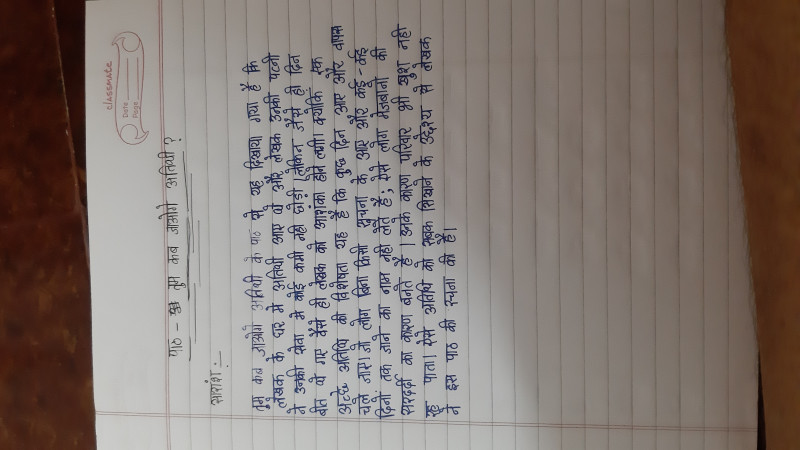 classmate
Date
Page
पाठ - तुम कब जाओगे अतिथी ?
सारांश :-
तुम कब जाओगे अतिथी के पाठ से यह दिखाया गया है कि
लेखक के घर मे अतिथी आए थे और लेखक उनकी पटनी
ने उनकी सेवा मे कोई कमी नही छोड़ी। लेकिन जैसे ही दिन
बीत थे गए वैसे ही लेखक को आशंका होने लगी। क्योकि एक
अच्छे अतिथि की विशेषता यह है कि कुछ दिन आए और वापस
चले जाए। जो लोग बिना किसी सुचना के आए और कई - कई
दिनो तक जाने का नाम नही लेते है; ऐसे लोग मेजबानो की
सरदर्दी का कारण बनते है । उनके कारण परिवार भी खुश नही
रह पाता। ऐसे अतिथि को सबक सिखाने के उद्देश्य से लेखक
ने इस पाठ की रचना की है।